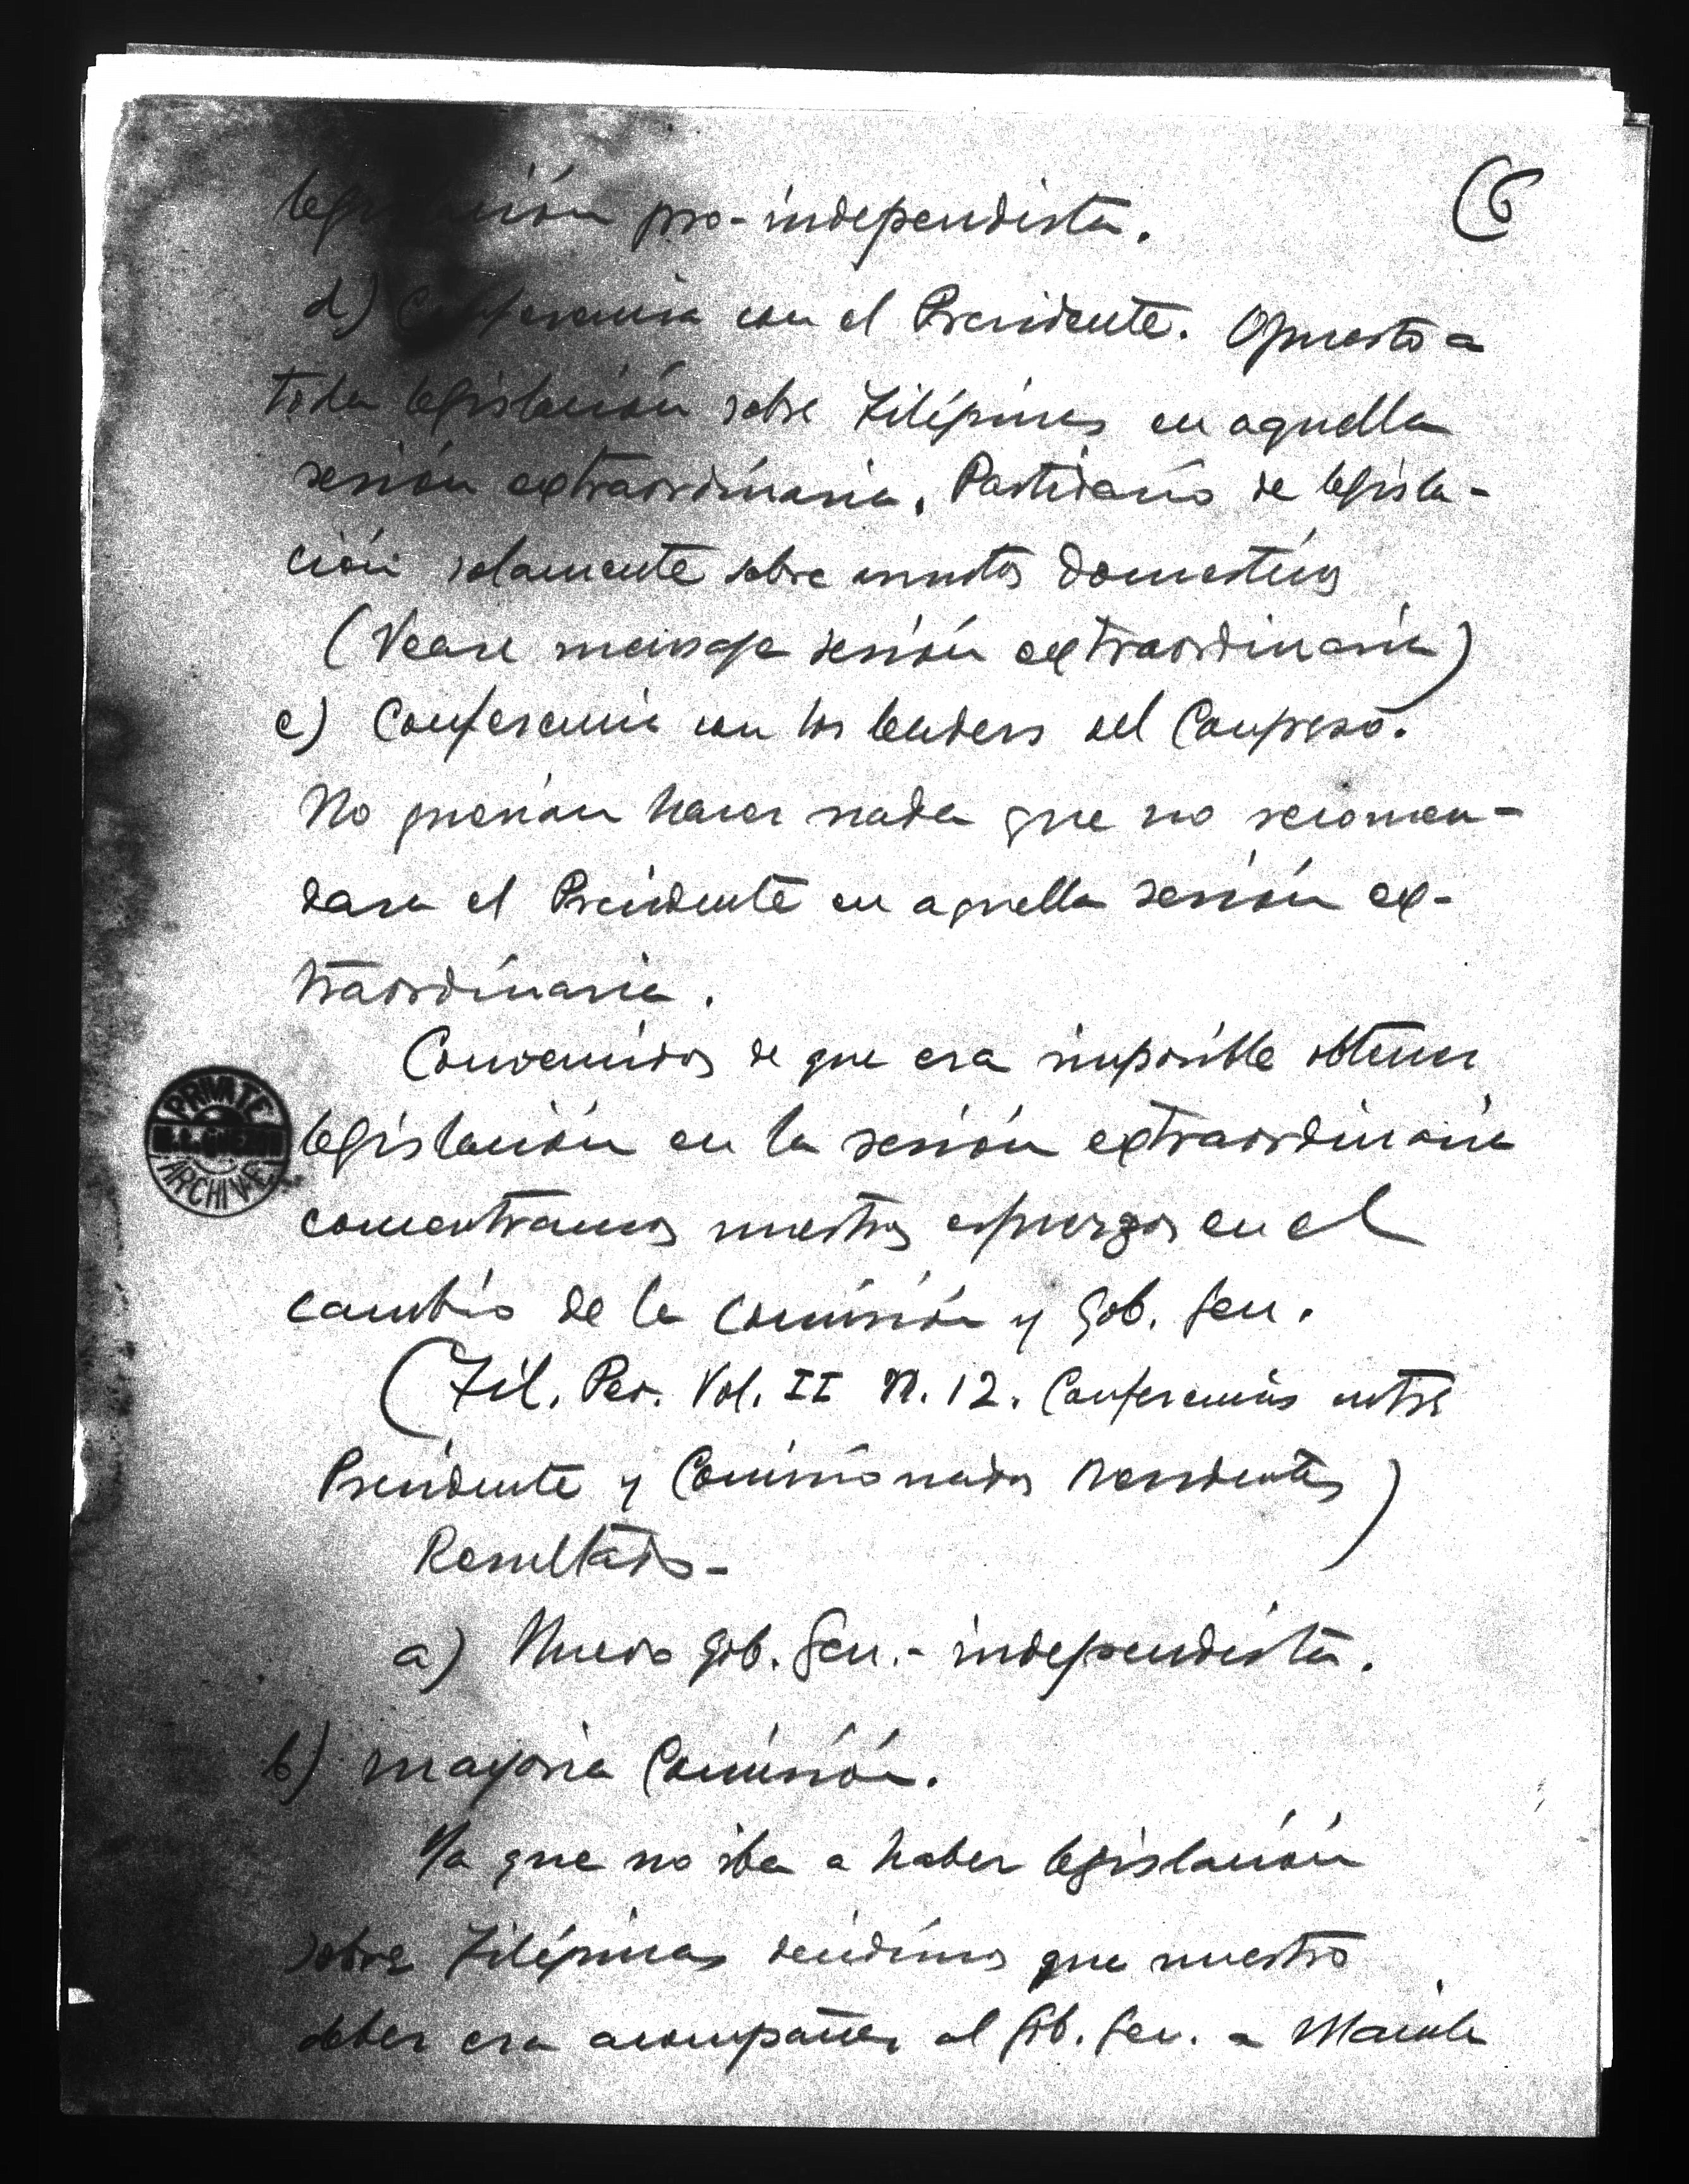 (6
legislación pro-independista.
d) Conferencia con el Presidente. Opuesto a
toda legislación sobre Filipinas en aquella
sesión extraordinaria. Partidario de legisla-
ción solamente sobre asuntos domesticos
(Vease mensaje sesión extraordinaria)
e) Conferencia con los leaders del Congreso.
No querian hacer nada que no recomen-
dara el Presidente en aquella sesión ex-
traordinaria.
Convencidos de que era imposible obtener
legislación en la sesión extraordinaria
concentramos nuestros esfuerzos en el
cambio de la Comisión y Gob. Gen.
(Fil. Peo. Vol. II N. 12. Conferencias entre
Presidente y Comisionados Residentes)
Resultado-
a) Nuevo Gob. Gen.- independista.
b) mayoria Comisión.
Ya que no iba a haber legislación
sobre Filipinas decidimos que nuestro
deber era acompañar al Gob. Gen. a Manila
PRIVATE
M. L. QUEZON
ARCHIVE